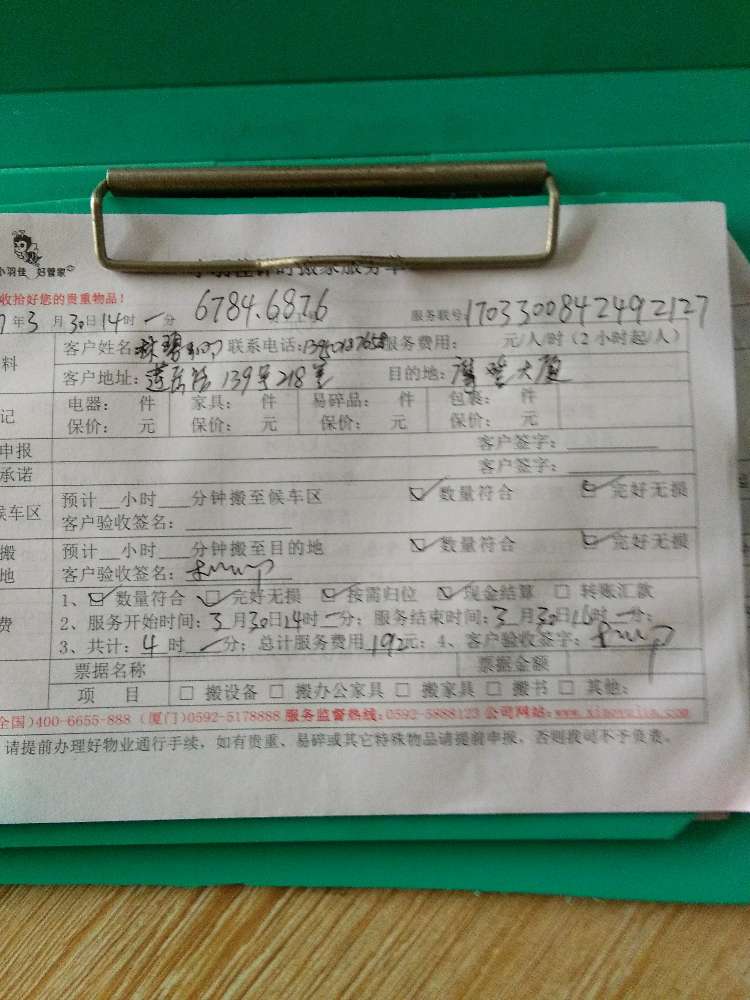 小羽佳 好管家
小羽佳计时搬家服务单
收拾好您的贵重物品!
7年3月30日14时一分 6784.6876 服务联号:1703300842492127
料 客户姓名: 联系电话: 服务费用: 元/人/时(2小时起/人)
客户地址:莲岳路139号218室 目的地: 大厦
记 电器: 件 家具: 件 易碎品: 件 包裹: 件
保价: 元 保价: 元 保价: 元 保价: 元
申报 客户签字:
承诺 客户签字:
候车区 预计__小时___分钟搬至候车区 ☑数量符合 ☑完好无损
客户验收签名:
搬 预计__小时___分钟搬至目的地 ☑数量符合 ☑完好无损
地 客户验收签名:
1、☑数量符合 ☑完好无损 ☑按需归位 ☑现金结算 □ 转账汇款
费 2、服务开始时间:3月30日14时一分;服务结束时间:3月30日16时一分;
3、共计:4时一分;总计服务费用192元;4、客户验收签字:
票据名称 票据金额
项 目 □ 搬设备 □ 搬办公家具 □ 搬家具 □ 搬书 □ 其他:
全国)400-6655-888 (厦门)0592-5178888 服务监督热线:0592-5888123 公司网站:www.xiaoyujia.com
请提前办理好物业通行手续,如有贵重、易碎或其它特殊物品请提前申报,否则我司不予负责。